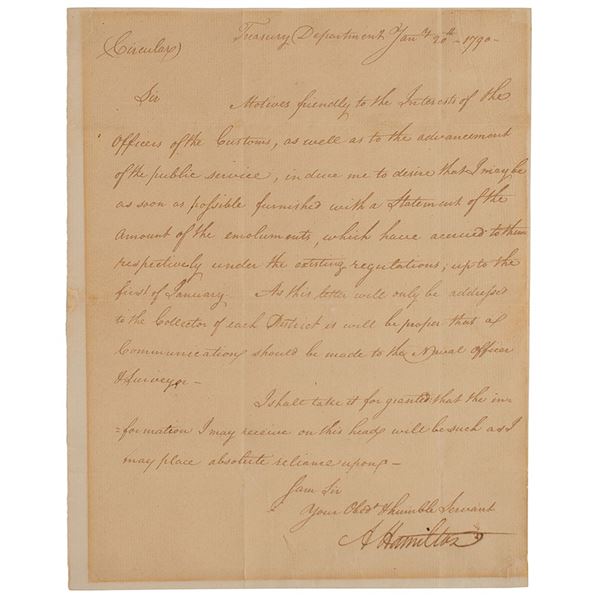 Treasury Department Jany 20th - 1790 -
(Circular)
Sir Motives friendly to the Interests of the
Officers of the Customs, as well as to the advancement
of the public service, induce me to desire that I may be
as soon as possible furnished with a Statement of the
Amount of the emoluments, which have accrued to them
respectively under the existing regulations, up to the
first of January. As this letter will only be addressed
to the Collector of each District it will be proper that a
Communication should be made to the Naval Officer
& Surveyor -
I shall take it for granted that the in=
=formation I may receive on this head will be such as I
may place absolute reliance upon -
I am Sir
Your Obedt & humble Servant
A Hamilton